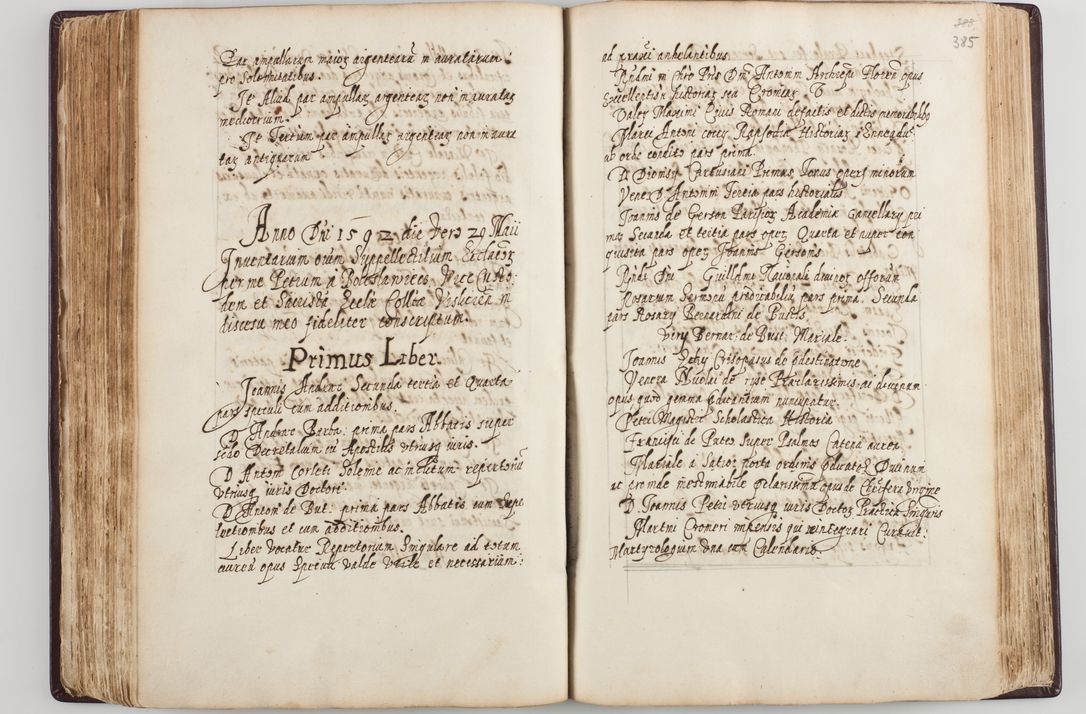 Par ampullarum maior argentearum in auratarum
pro Solemnitatibus.
Jt Aliud par ampullar argentear non in auratar
mediocrium.
Jt Tertium par ampullar argentear non in aura
tar antiquarum
Anno Dni 1592 die vero 29 Maii
Inventarium oium Suppellectilium Ecclae
per me Petrum a Boleslawiecz Vice Custo-
dem et Socium Eccle Collte Visliciem in
discessu meo fideliter conscriptum.
Primus Liber.
Joannis Andrae Secunda tertia et Quarta
pars Speculi cum additionibus.
D. Andrae Barba: prima pars Abbatis super
scdo Decretalium cu Apostillis utriusq iuris.
D Antonii Corseti Solemne ac inclitum repertoriu
utriusq iuris Doctori.
D Anton de But: prima pars Abbatis cum repe
titionibus et cum additionibus.
Liber vocatur Repertorium Singulare ad totam
aurea opus Speculi valde utile et necessarium:
383
385
ad praxi anhelantibus
Rndmi in Chro Pris Dni Antonini Archiepi Floren opus
Excellentissm historiar seu Cronicar
Valer Maximi Civis Romani de factis et dictis memorabilib
Marci Antoni cocey Rapsodiae Historiar Enneadu
ab orbe condito pars prima.
D. Dionisy Cartusiani Primus Tomus operu minorum
Vene D Antonini Tertia pars historialis
Joannis de Gerson Parisior Academiae Cancellary pri
mus Secunda et tertia pars oper, Quarta et nuper con
quisita pars oper Joannis Gersonis
Rndi Dni Guillelmi Rationale divinor officorum
Rosarium Sermonu praedicabiliu pars prima. Secunda
pars Rosary Bernardini de Bustis.
Viri Bernar: de Bust: Mariale.
Joannis Eckij Crisopasus de praedestinatione
Venera Nicolai de Praeclarissimus ac divinum
opus quod gemma praedicantium nuncupatur.
Petri Magistri Scholastica Historia
Francisci de Puteo Super Psalmos Catena aurea
Mariale a Satior porta ordinis praedicator Divinum
ac proinde inestimabile praeclarissimu opus de Christifera virgine
D. Joannis Petri utriusq iuris Doctor Practica Singularis
Martini Cromeri impensis qui reintegrari Curavit:
Martyrologium una cum Calendario.